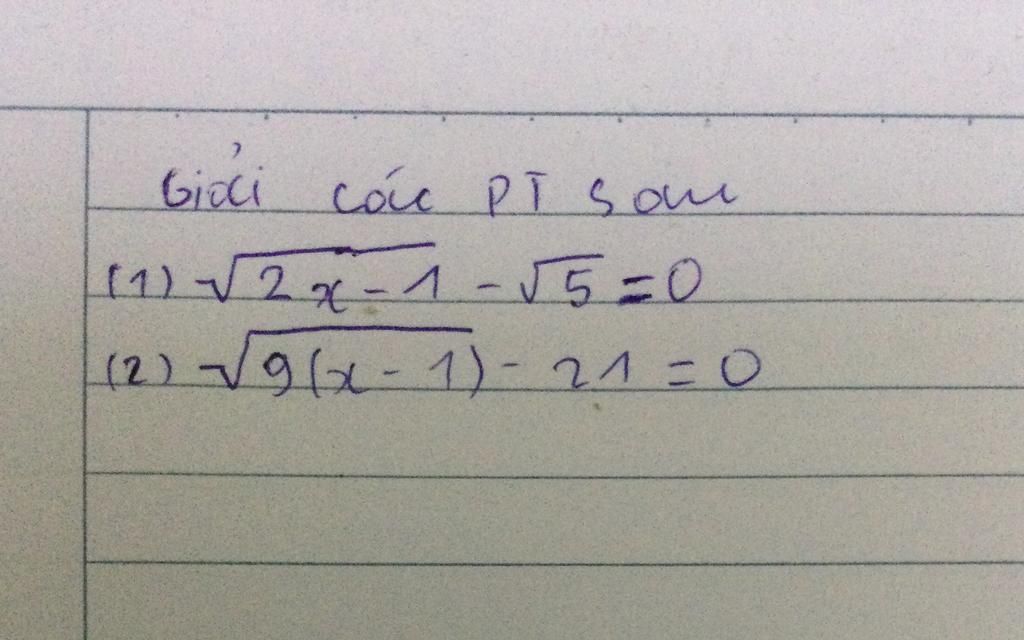 Giải các PT sau
(1) √(2x - 1) - √5 = 0
(2) √(9(x - 1)) - 21 = 0